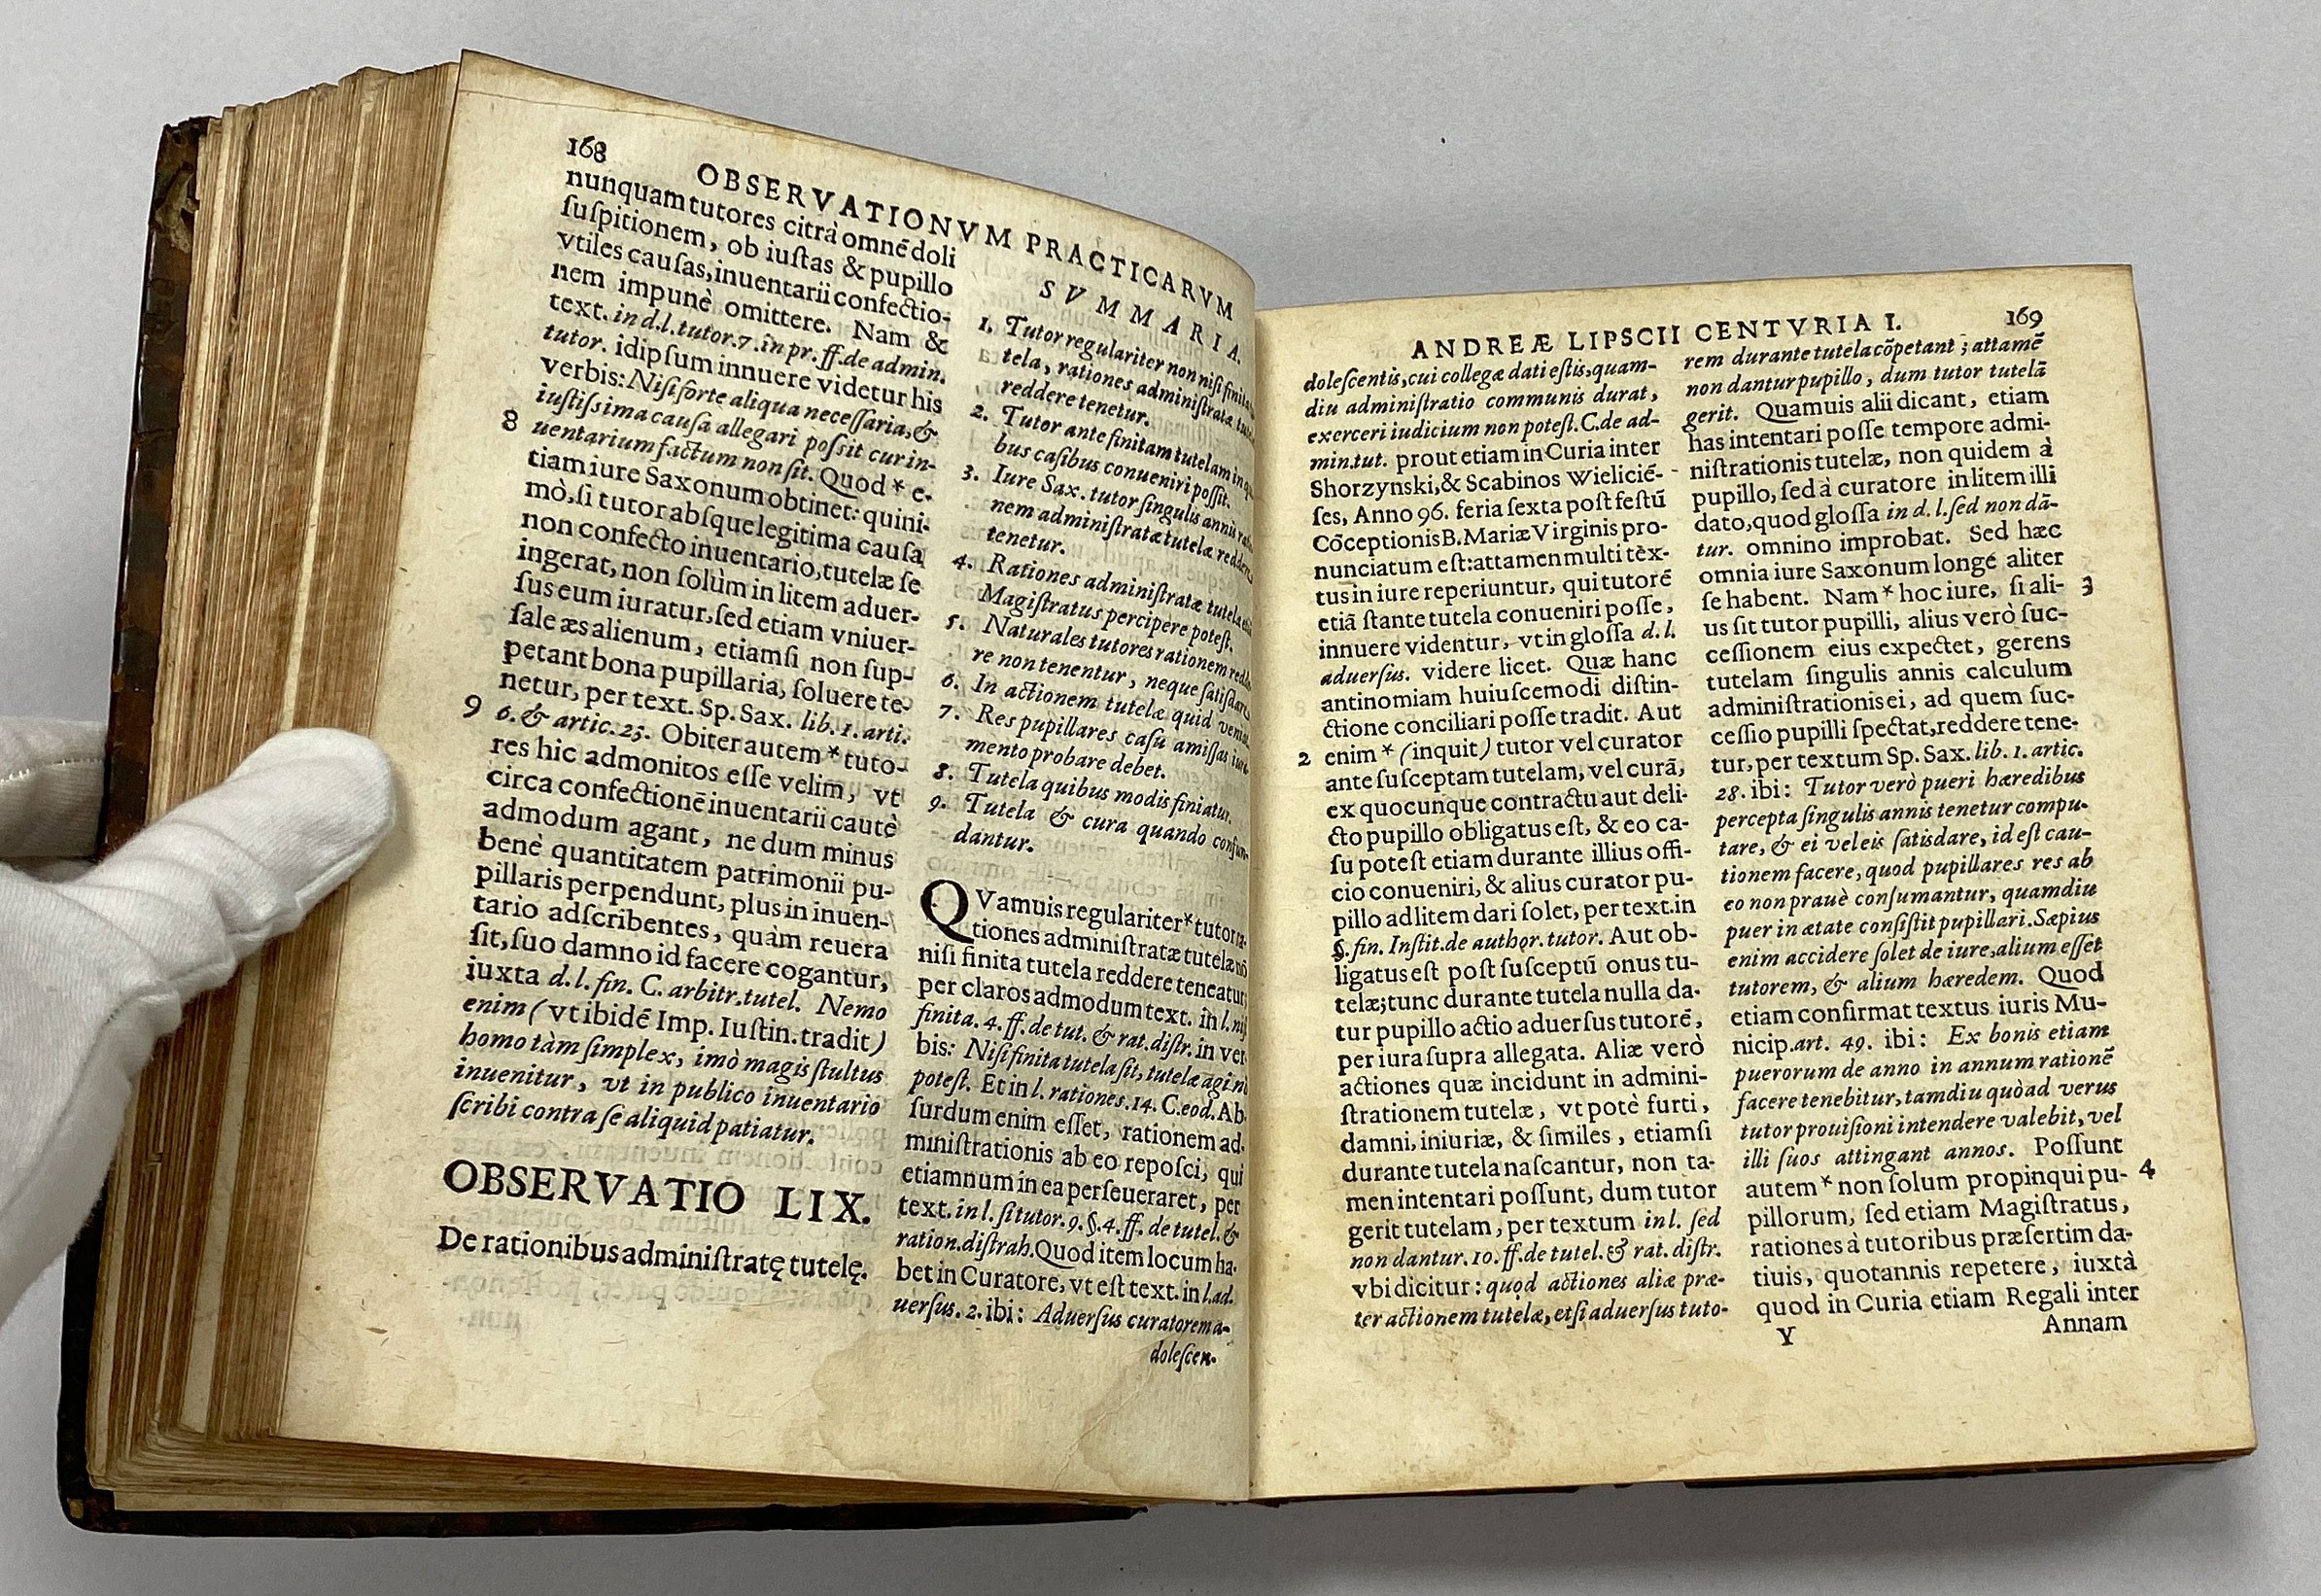 168
OBSERVATIONVM PRACTICARVM
nunquam tutores citrà omnē doli
ſuſpitionem, ob iuſtas & pupillo
vtiles cauſas, inuentarii confectio-
nem impunè omittere. Nam &
text. in d.l. tutor. 7. in pr. ff. de admin.
tutor. idipſum innuere videtur his
verbis: Niſi forte aliqua neceſſaria, &
iuſtiſsima cauſa allegari poſsit cur in-
8 uentarium factum non ſit. Quod * e-
tiam iure Saxonum obtinet: quini-
mò, ſi tutor abſque legitima cauſa,
non confecto inuentario, tutelæ ſe
ingerat, non ſolùm in litem aduer-
ſus eum iuratur, ſed etiam vniuer-
ſale æs alienum, etiamſi non ſup-
petant bona pupillaria, ſoluere te-
netur, per text. Sp. Sax. lib. 1. arti.
9 6. & artic. 23. Obiter autem * tuto-
res hic admonitos eſſe velim, vt
circa confectionē inuentarii cautè
admodum agant, ne dum minus
benè quantitatem patrimonii pu-
pillaris perpendunt, plus in inuen-
tario adſcribentes, quàm reuera
ſit, ſuo damno id facere cogantur,
iuxta d. l. fin. C. arbitr. tutel. Nemo
enim ( vt ibidē Imp. Iuſtin. tradit )
homo tàm ſimplex, imò magis ſtultus
inuenitur, vt in publico inuentario
ſcribi contra ſe aliquid patiatur.
OBSERVATIO LIX.
De rationibus adminiſtratę tutelę.
SVMMARIA.
1. Tutor regulariter non niſi finita
tela, rationes adminiſtratæ
reddere tenetur.
2. Tutor ante finitam tutelam in
bus caſibus conueniri poſſit.
3. Iure Sax. tutor ſingulis annis
nem adminiſtratæ tutelæ
tenetur.
4. Rationes adminiſtratæ tutelæ
Magiſtratus percipere poteſt.
5. Naturales tutores rationem
re non tenentur, neque ſatiſdare
6. In actionem tutelæ quid
7. Res pupillares caſu amiſſas
mento probare debet.
8. Tutela quibus modis finiatur.
9. Tutela & cura quando confun-
dantur.
QVamuis regulariter * tutor ra-
tiones adminiſtratæ tutelæ nō
niſi finita tutela reddere teneatur,
per claros admodum text. in l. niſi
finita. 4. ff. de tut. & rat. diſtr. in ver
bis: Niſi finita tutela ſit, tutelæ agi nō
poteſt. Et in l. rationes. 14. C. eod. Ab-
ſurdum enim eſſet, rationem ad-
miniſtrationis ab eo repoſci, qui
etiamnum in ea perſeueraret, per
text. in l. ſi tutor. 9. §. 4. ff. de tutel. &
ration. diſtrah. Quod item locum ha-
bet in Curatore, vt eſt text. in l. ad-
uerſus. 2. ibi: Aduerſus curatorem a-
doleſcen-
ANDREÆ LIPSCII CENTVRIA I.
169
doleſcentis, cui collegæ dati eſtis, quam-
diu adminiſtratio communis durat,
exerceri iudicium non poteſt. C. de ad-
min. tut. prout etiam in Curia inter
Shorzynski, & Scabinos Wieliciē-
ſes, Anno 96. feria ſexta poſt feſtū
Cōceptionis B. Mariæ Virginis pro-
nunciatum eſt: attamen multi tèx-
tus in iure reperiuntur, qui tutorē
etiā ſtante tutela conueniri poſſe,
innuere videntur, vt in gloſſa d. l.
aduerſus. videre licet. Quæ hanc
antinomiam huiuſcemodi diſtin-
ctione conciliari poſſe tradit. Aut
2 enim * (inquit) tutor vel curator
ante ſuſceptam tutelam, vel curā,
ex quocunque contractu aut deli-
cto pupillo obligatus eſt, & eo ca-
ſu poteſt etiam durante illius offi-
cio conueniri, & alius curator pu-
pillo ad litem dari ſolet, per text. in
§. fin. Inſtit. de author. tutor. Aut ob-
ligatus eſt poſt ſuſceptū onus tu-
telæ; tunc durante tutela nulla da-
tur pupillo actio aduerſus tutorē,
per iura ſupra allegata. Aliæ verò
actiones quæ incidunt in admini-
ſtrationem tutelæ, vt potè furti,
damni, iniuriæ, & ſimiles, etiamſi
durante tutela naſcantur, non ta-
men intentari poſſunt, dum tutor
gerit tutelam, per textum in l. ſed
non dantur. 10. ff. de tutel. & rat. diſtr.
vbi dicitur: quod actiones aliæ præ-
ter actionem tutelæ, etſi aduerſus tuto-
rem durante tutela cōpetant; attamē
non dantur pupillo, dum tutor tutelā
gerit. Quamuis alii dicant, etiam
has intentari poſſe tempore admi-
niſtrationis tutelæ, non quidem à
pupillo, ſed à curatore in litem illi
dato, quod gloſſa in d. l. ſed non dā-
tur. omnino improbat. Sed hæc
omnia iure Saxonum longè aliter
ſe habent. Nam * hoc iure, ſi ali- 3
us ſit tutor pupilli, alius verò ſuc-
ceſſionem eius expectet, gerens
tutelam ſingulis annis calculum
adminiſtrationis ei, ad quem ſuc-
ceſſio pupilli ſpectat, reddere tene-
tur, per textum Sp. Sax. lib. 1. artic.
28. ibi: Tutor verò pueri hæredibus
percepta ſingulis annis tenetur compu-
tare, & ei vel eis ſatisdare, id eſt cau-
tionem facere, quod pupillares res ab
eo non prauè conſumantur, quamdiu
puer in ætate conſiſtit pupillari. Sæpius
enim accidere ſolet de iure, alium eſſet
tutorem, & alium hæredem. Quod
etiam confirmat textus iuris Mu-
nicip. art. 49. ibi: Ex bonis etiam
puerorum de anno in annum rationē
facere tenebitur, tamdiu quòad verus
tutor prouiſioni intendere valebit, vel
illi ſuos attingant annos. Poſſunt
autem * non ſolum propinqui pu- 4
pillorum, ſed etiam Magiſtratus,
rationes à tutoribus præſertim da-
tiuis, quotannis repetere, iuxtà
quod in Curia etiam Regali inter
Y
Annam